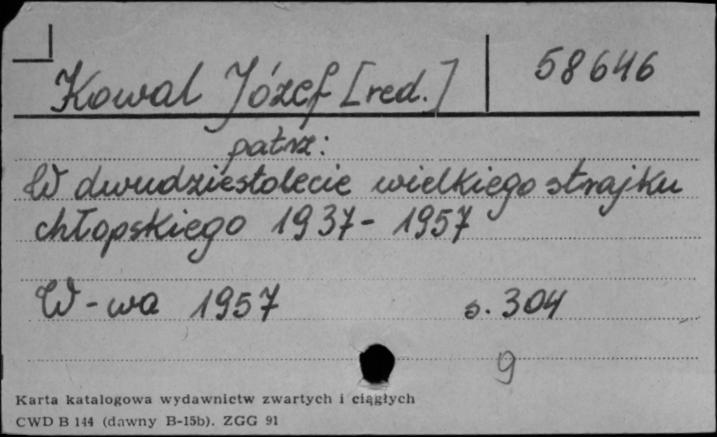 Kowal Józef [red.] 58646
patrz:
W dwudziestolecie wielkiego strajku
chłopskiego 1937-1957
W-wa 1957 s. 304
g
Karta katalogowa wydawnictw zwartych i ciągłych
CWD B 144 (dawny B-15b). ZGG 91